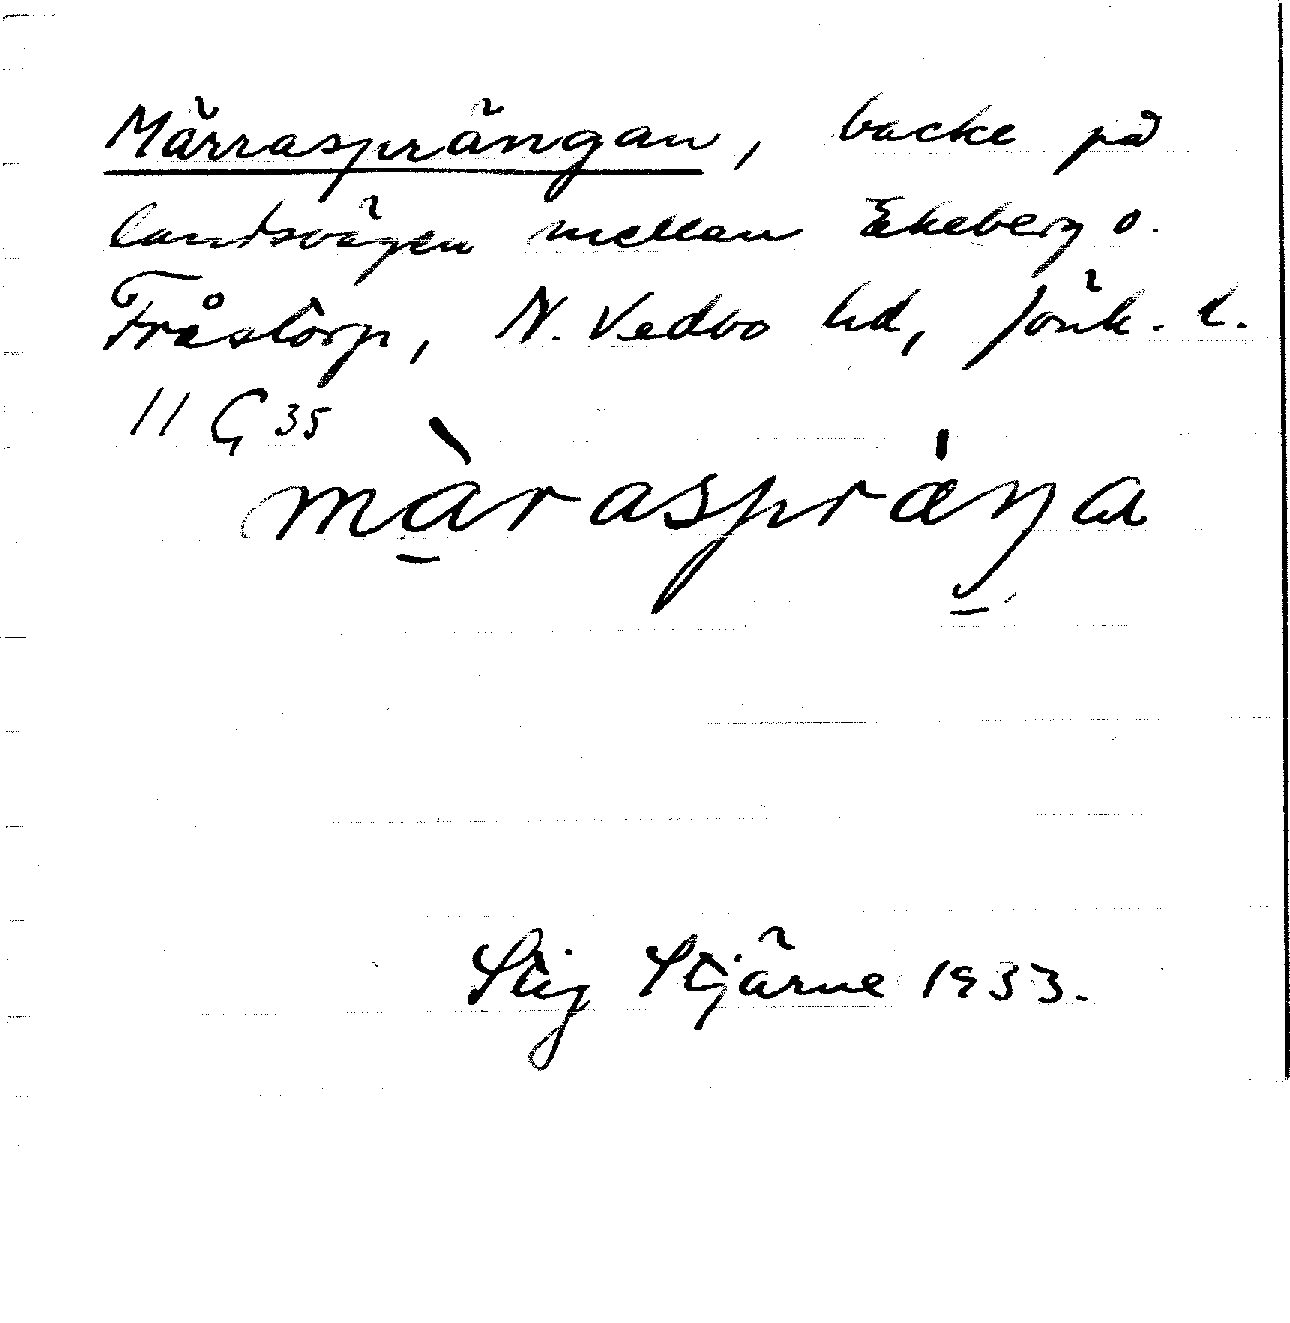 Märrasprängan, backe på
landsvägen mellan Ekeberg o.
Fråstorp, N. Vedbo hd, Jönk. l.
11 G 35
mæ̀raspræ´ŋa
Stig Stjärne 1933.